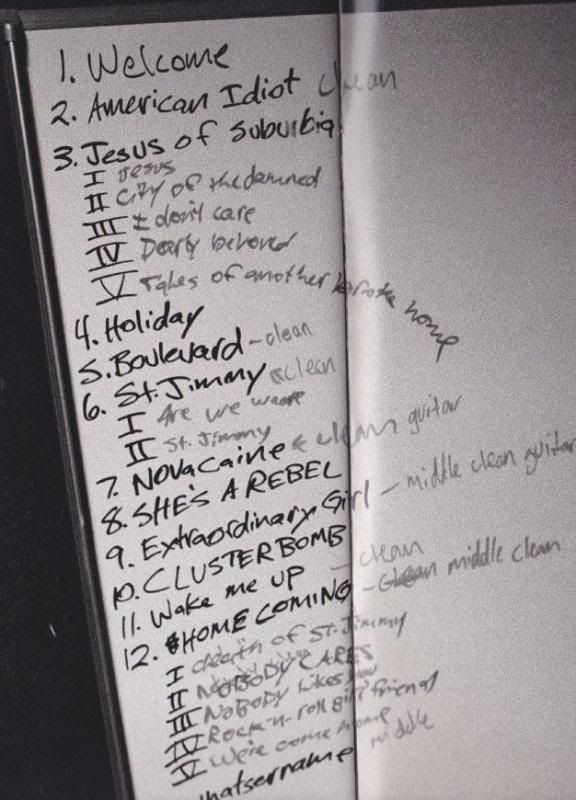 1. Welcome
2. American Idiot clean
3. Jesus of Suburbia
I Jesus
II City of the damned
III I don't care
IV Dearly beloved
V Tales of another broke home
4. Holiday
5. Boulevard - clean
6. St. Jimmy & clean
I Are we we are
II St. Jimmy
7. Novacaine & clean guitar
8. SHE'S A REBEL
9. Extraordinary Girl - middle clean guitar
10. CLUSTERBOMB
11. Wake me UP - clean
12. HOMECOMING - clean middle clean
I death of St. Jimmy
II NOBODY CARES
III NOBODY Likes you
IV Rock-n-roll girlfriend
V We're come home
whatsername middle